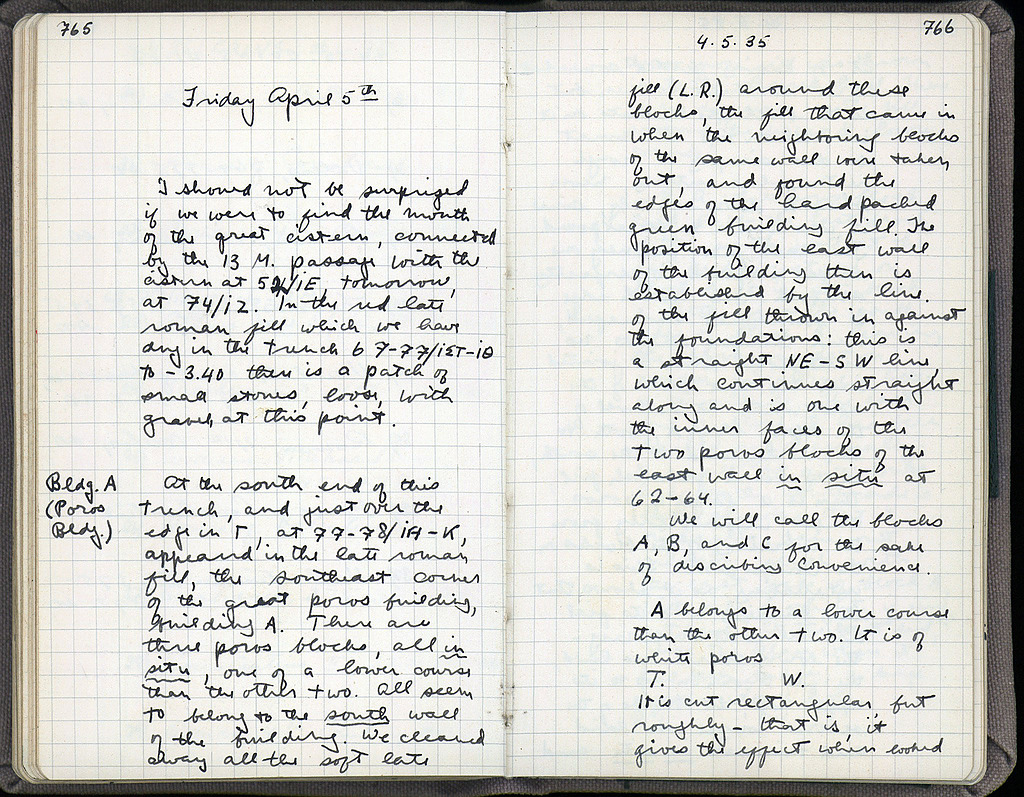 765
Friday April 5th
I should not be surprized
if we were to find the mouth
of the great cistern, connected
by the 13 M. passage with the
cistern at 52/ΙΕ, tomorrow,
at 74/ΙΖ. In the red late
roman fill which we have
dug in the trench 67-77/ΙΣΤ-ΙΘ
to - 3.40 there is a patch of
small stones, loose, with
gravel, at this point.
Bldg. A
(Poros
Bldg.)
At the south end of this
trench, and just over the
edge in Γ, at 77-78/ΙΗ-Κ,
appeared in the late roman
fill, the southeast corner
of the great poros building,
Building A. There are
three poros blocks, all in
situ, one of a lower course
than the other two. All seem
to belong to the south wall
of the building. We cleaned
away all the soft late
766
4.5.35
fill (L.R.) around these
blocks, the fill that came in
when the neighboring blocks
of the same wall were taken
out, and found the
edges of the hard packed
green building fill. The
position of the east wall
of the building then is
established by the line
of the fill thrown in against
the foundations: this is
a straight NE-SW line,
which continues straight
along and is one with
the inner faces of the
two poros blocks of the
east wall in situ at
62-64.
We will call the blocks
A, B, and C for the sake
of describing convenience.
A belongs to a lower course
than the other two. It is of
white poros
T. W.
It is cut rectangular but
roughly - that is, it
gives the effect when looked